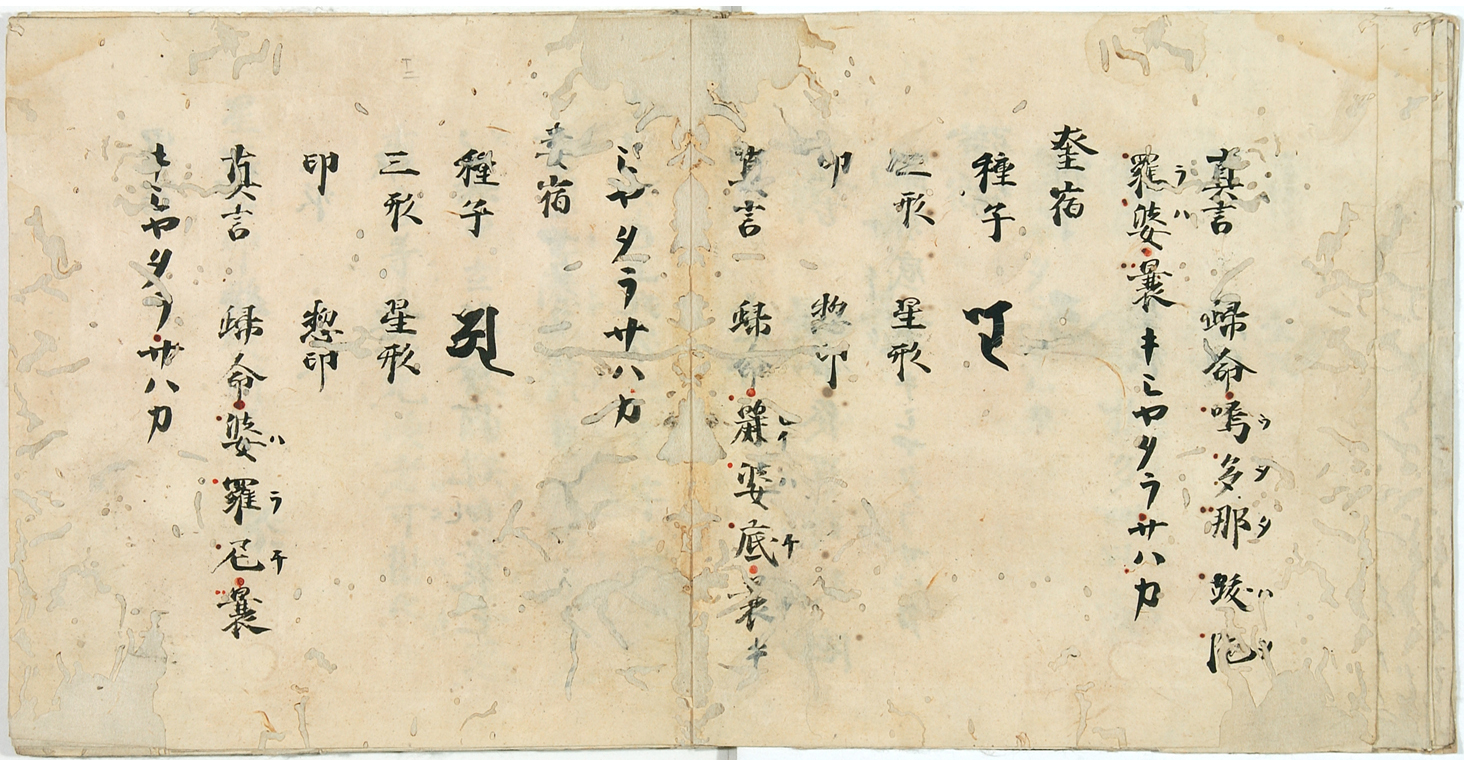 真言 歸命嗚多那跋陀
羅婆曩キミヤタラサハカ
奎宿
種子
三形 星形
印 惣印
真言 歸命麗婆底曩キ
ミヤタラサハカ
婁宿
種子
三形 星形
印 惣印
真言 歸命婆羅尼曩
キミヤタラサハカ